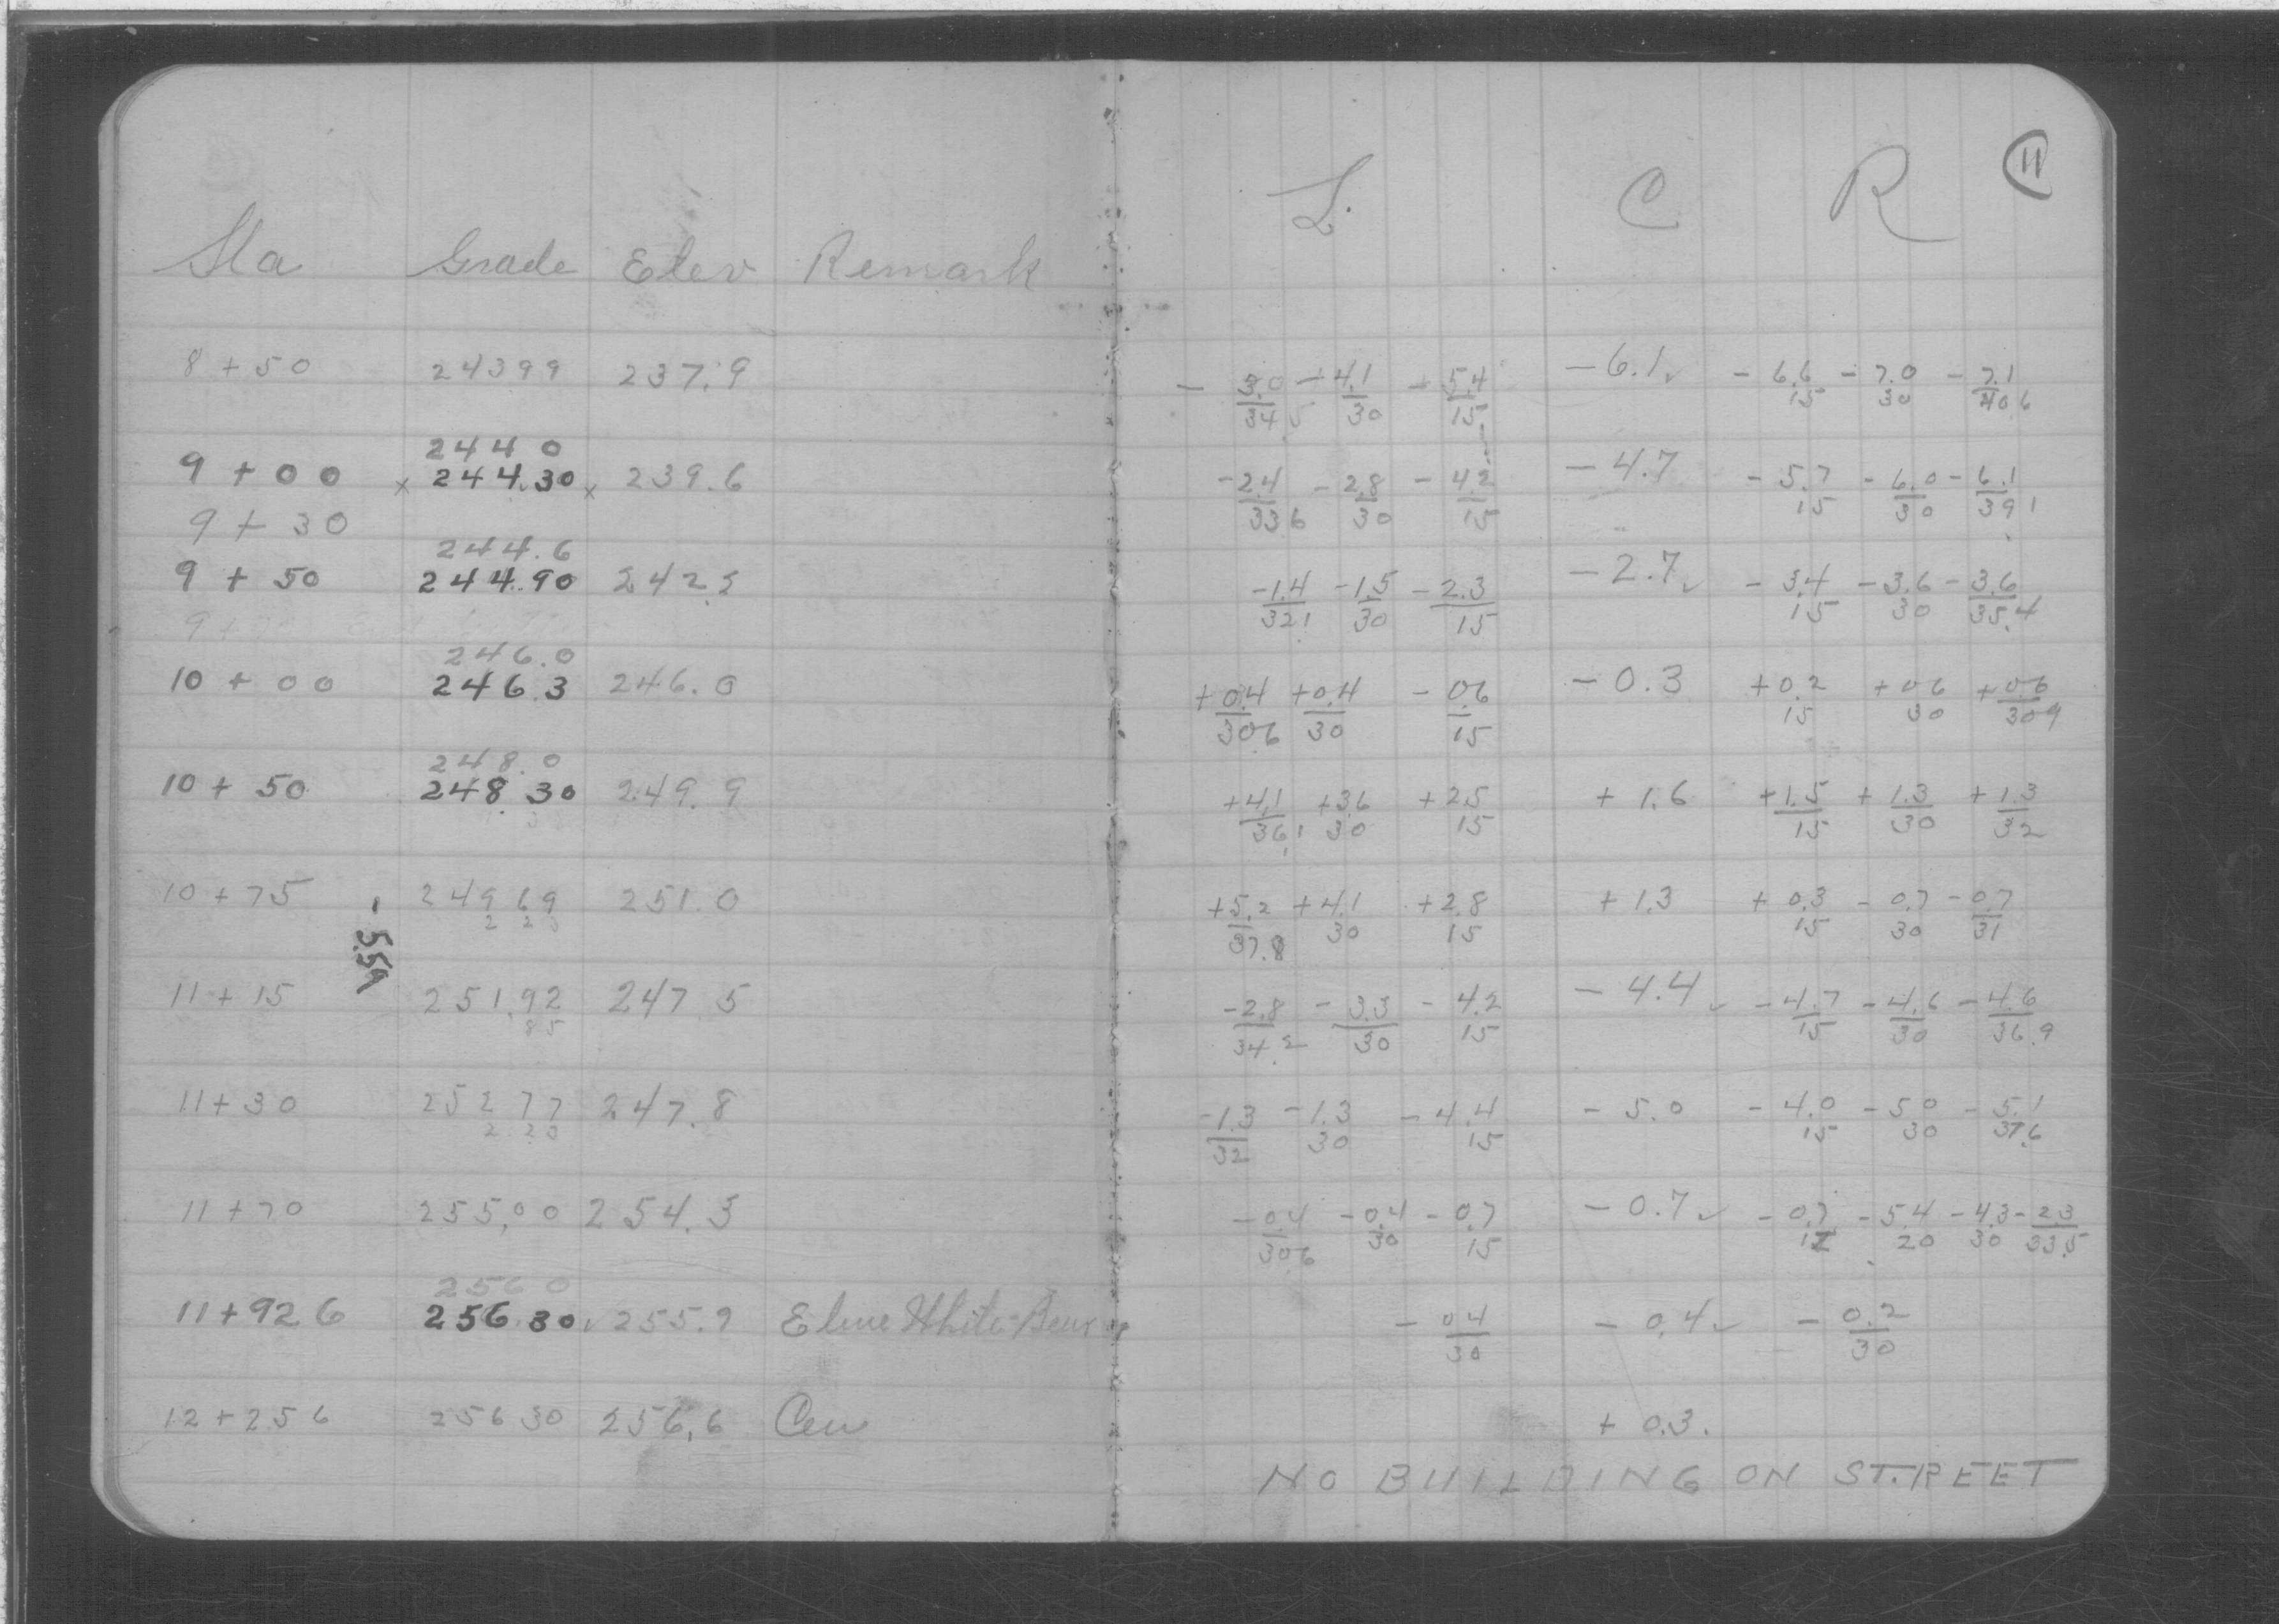 11
L. C R
Sta Grade Elev Remark
8 + 50 243 99 237.9 - 3.0/34 5 - 4.1/30 - 5.4/15 - 6.1 - 6.6/15 - 7.0/30 - 7.1/40 6
244 0
9 + 00 x 244.30 x 239.6 - 2.4/33 6 - 2.8/30 - 4.2/15 - 4.7 - 5.7/15 - 6.0/30 - 6.1/39 1
9 + 30
244.6
9 + 50 244.90 242.2 - 1.4/32 1 - 1.5/30 - 2.3/15 - 2.7 - 3.4/15 - 3.6/30 - 3.6/35.4
246.0
10 + 00 246 3 246.0 + 0.4/30 6 + 0.4/30 - 0.6/15 - 0.3 + 0.2/15 + 0 6/30 + 0.6/30 9
248.0
10 + 50 248 30 249.9 + 4.1/36.1 + 3.6/30 + 2.5/15 + 1.6 + 1.5/15 + 1.3/30 + 1.3/32
10 + 75 249 69 251.0 + 5.2/37.8 + 4.1/30 + 2.8/15 + 1.3 + 0.3/15 - 0.7/30 - 0.7/31
5.59
11 + 15 251.92 247 5 - 2.8/34.2 - 3.3/30 - 4.2/15 - 4.4 - 4.7/15 - 4.6/30 - 4.6/36.9
85
11 + 30 252 77 247.8 - 1.3/32 - 1.3/30 - 4.4/15 - 5.0 - 4.0/15 - 5 0/30 - 5.1/37.6
2 23
11 + 70 255.00 254.3 - 0.4/30 6 - 0.4/30 - 0.7/15 - 0.7 - 0.7/12 - 5.4/20 - 4.3/30 - 2.3/33.5
256 0
11 + 92 6 256 30 255.9 E line White Bear - 0 4/30 - 0.4 - 0.2/30
12 + 25 6 256 30 256.6 Cen + 0.3.
NO BUILDING ON STREET